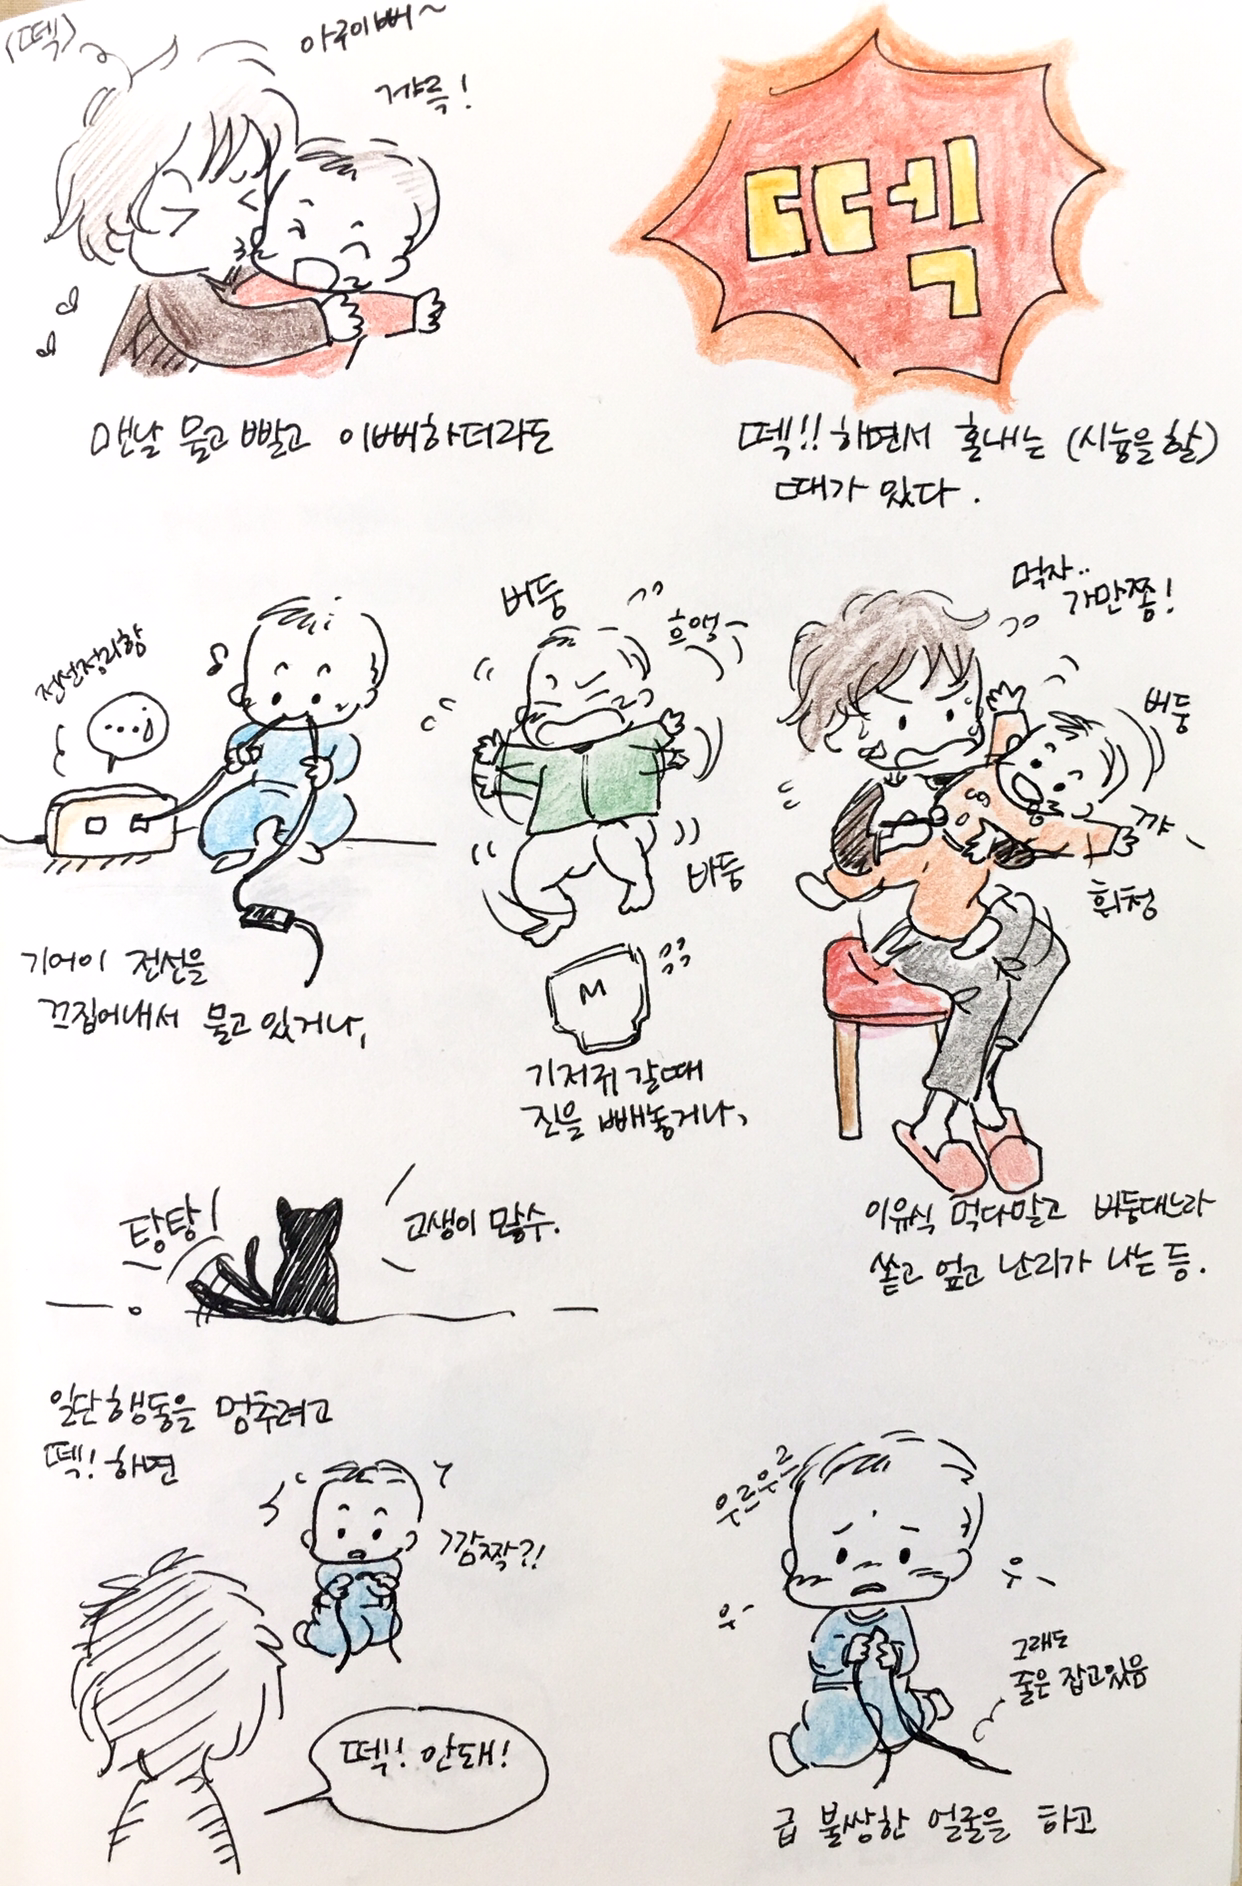 <떽>
아구이뻐~
꺄륵!
맨날 물고 빨고 이뻐하더라도
떽
떽!! 하면서 혼내는 (시늉을 할)
때가 있다.
전선정리함
...
기어이 전선을
끄집어내서 물고 있거나,
버둥
흐앵~
바둥
M
기저귀 갈때
진을 빼놓거나,
먹자..
가만쫌!
버둥
꺄
휘청
이유식 먹다말고 버둥대느라
쏟고 엎고 난리가 나는 등.
탕탕!
고생이 많수.
일단 행동을 멈추려고
떽! 하면
깜짝?!
떽!! 안돼!
우르우르
우-
우-
그래도
줄은 잡고있음
급 불쌍한 얼굴을 하고